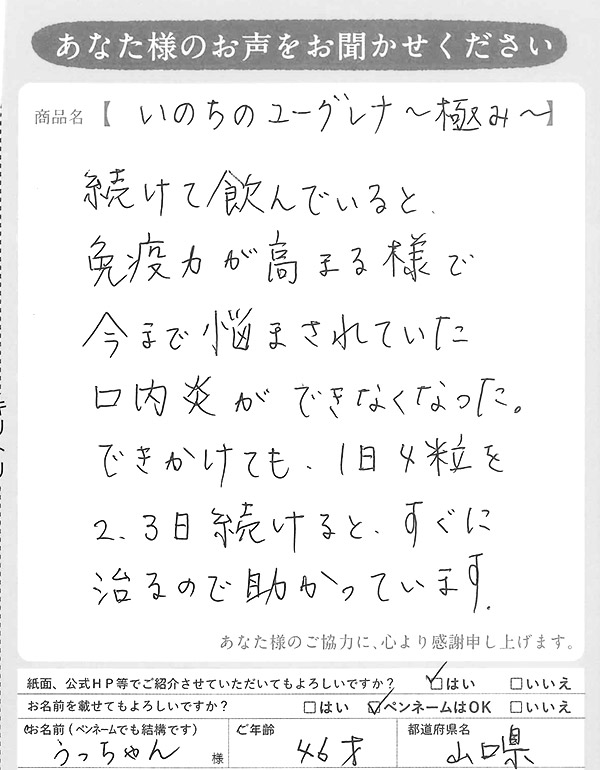 あなた様のお声をお聞かせください
商品名【 いのちのユーグレナ〜極み〜】
続けて飲んでいると、
免疫力が高まる様で
今まで悩まされていた
口内炎ができなくなった。
できかけても、1日4粒を
2、3日続けると、すぐに
治るので助かっています。
あなた様のご協力に、心より感謝申し上げます。
紙面、公式HP等でご紹介させていただいてもよろしいですか? ☑はい □いいえ
お名前を載せてもよろしいですか? □はい ☑ペンネームはOK □いいえ
お名前(ペンネームでも結構です) ご年齢 都道府県名
うっちゃん 様 46才 山口県